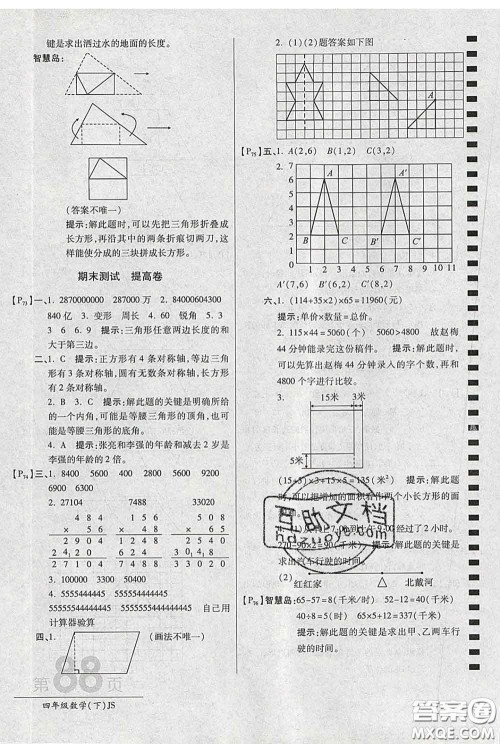 键是求出洒过水的地面的长度。
智慧岛:
(答案不唯一)
提示:解此题时,可以先把三角形折叠成
长方形,再沿其中的两条折痕切两刀,这
样能使分成的三块拼成长方形。
期末测试 提高卷
【P73】一、1. 2870000000 287000万 2. 84000604300
840亿 3. 变形 周长 4. 3 5. 3
3 6 6.9 提示:三角形任意两边长度的和
大于第三边。
二、1. C 提示:正方形有4条对称轴,等边三
角形有3条对称轴,圆有无数条对称轴,长方形
有2条对称轴。
2. B 3. C 提示:解此题的关键是明确所给
的一个内角,可能是等腰三角形的顶角,也可能
是等腰三角形的底角。
4. A 提示:张亮和李强的年龄和减去2岁是
李强的年龄的2倍。
【P74】三、1. 8400 5600 400 2800 5600 9200
6900 6300
2. 27104 7488 33020
484 208 508
× 56 × 36 × 65
2904 1248 2540
2420 624 3048
27104 7488 33020
3. 100000 53000 480
4. 55555444445 5555554444445
555555544444445 55555555444444445 自己用
计算器验算
四、1. (画法不唯一)
第88页
四年级数学(下)JS
2. (1)(2)题答案如下图
【P75】五、1. A(2,6) B(1,2) C(3,2)
2. 7
6
5
4
3
2
1
0 1 2 3 4 5 6 7 8 9 10 11
A A′
B C B′ C′
A′(7,6) B′(6,2) C′(8,2)
六、1. (114+35×2)×65=11960(元)
提示:单价×数量=总价。
2. 115×44=5060(个) 5060>4800 故赵梅
44分钟能录完这份稿件。 提示:解此题时,可
以先算出赵梅44分钟录入的字个数,再与
4800个字进行比较。
3. 15米 3米
5米
(15+3)×3+15×5=135(米²) 提示:解此题
270-90×2=90(千米) 提示:解此题的关键是
求出汽车行驶的时间。
(2)
红红家 北戴河
【P76】智慧岛:65-57=8(千米/时) 52-12=40(千米)
40÷8=5(时) 65×5+12=337(千米)
提示:解此题的关键是求出甲、乙两车行
驶的时间。
百助文档
hdzuoye.com
答案圈
MXQE.COM